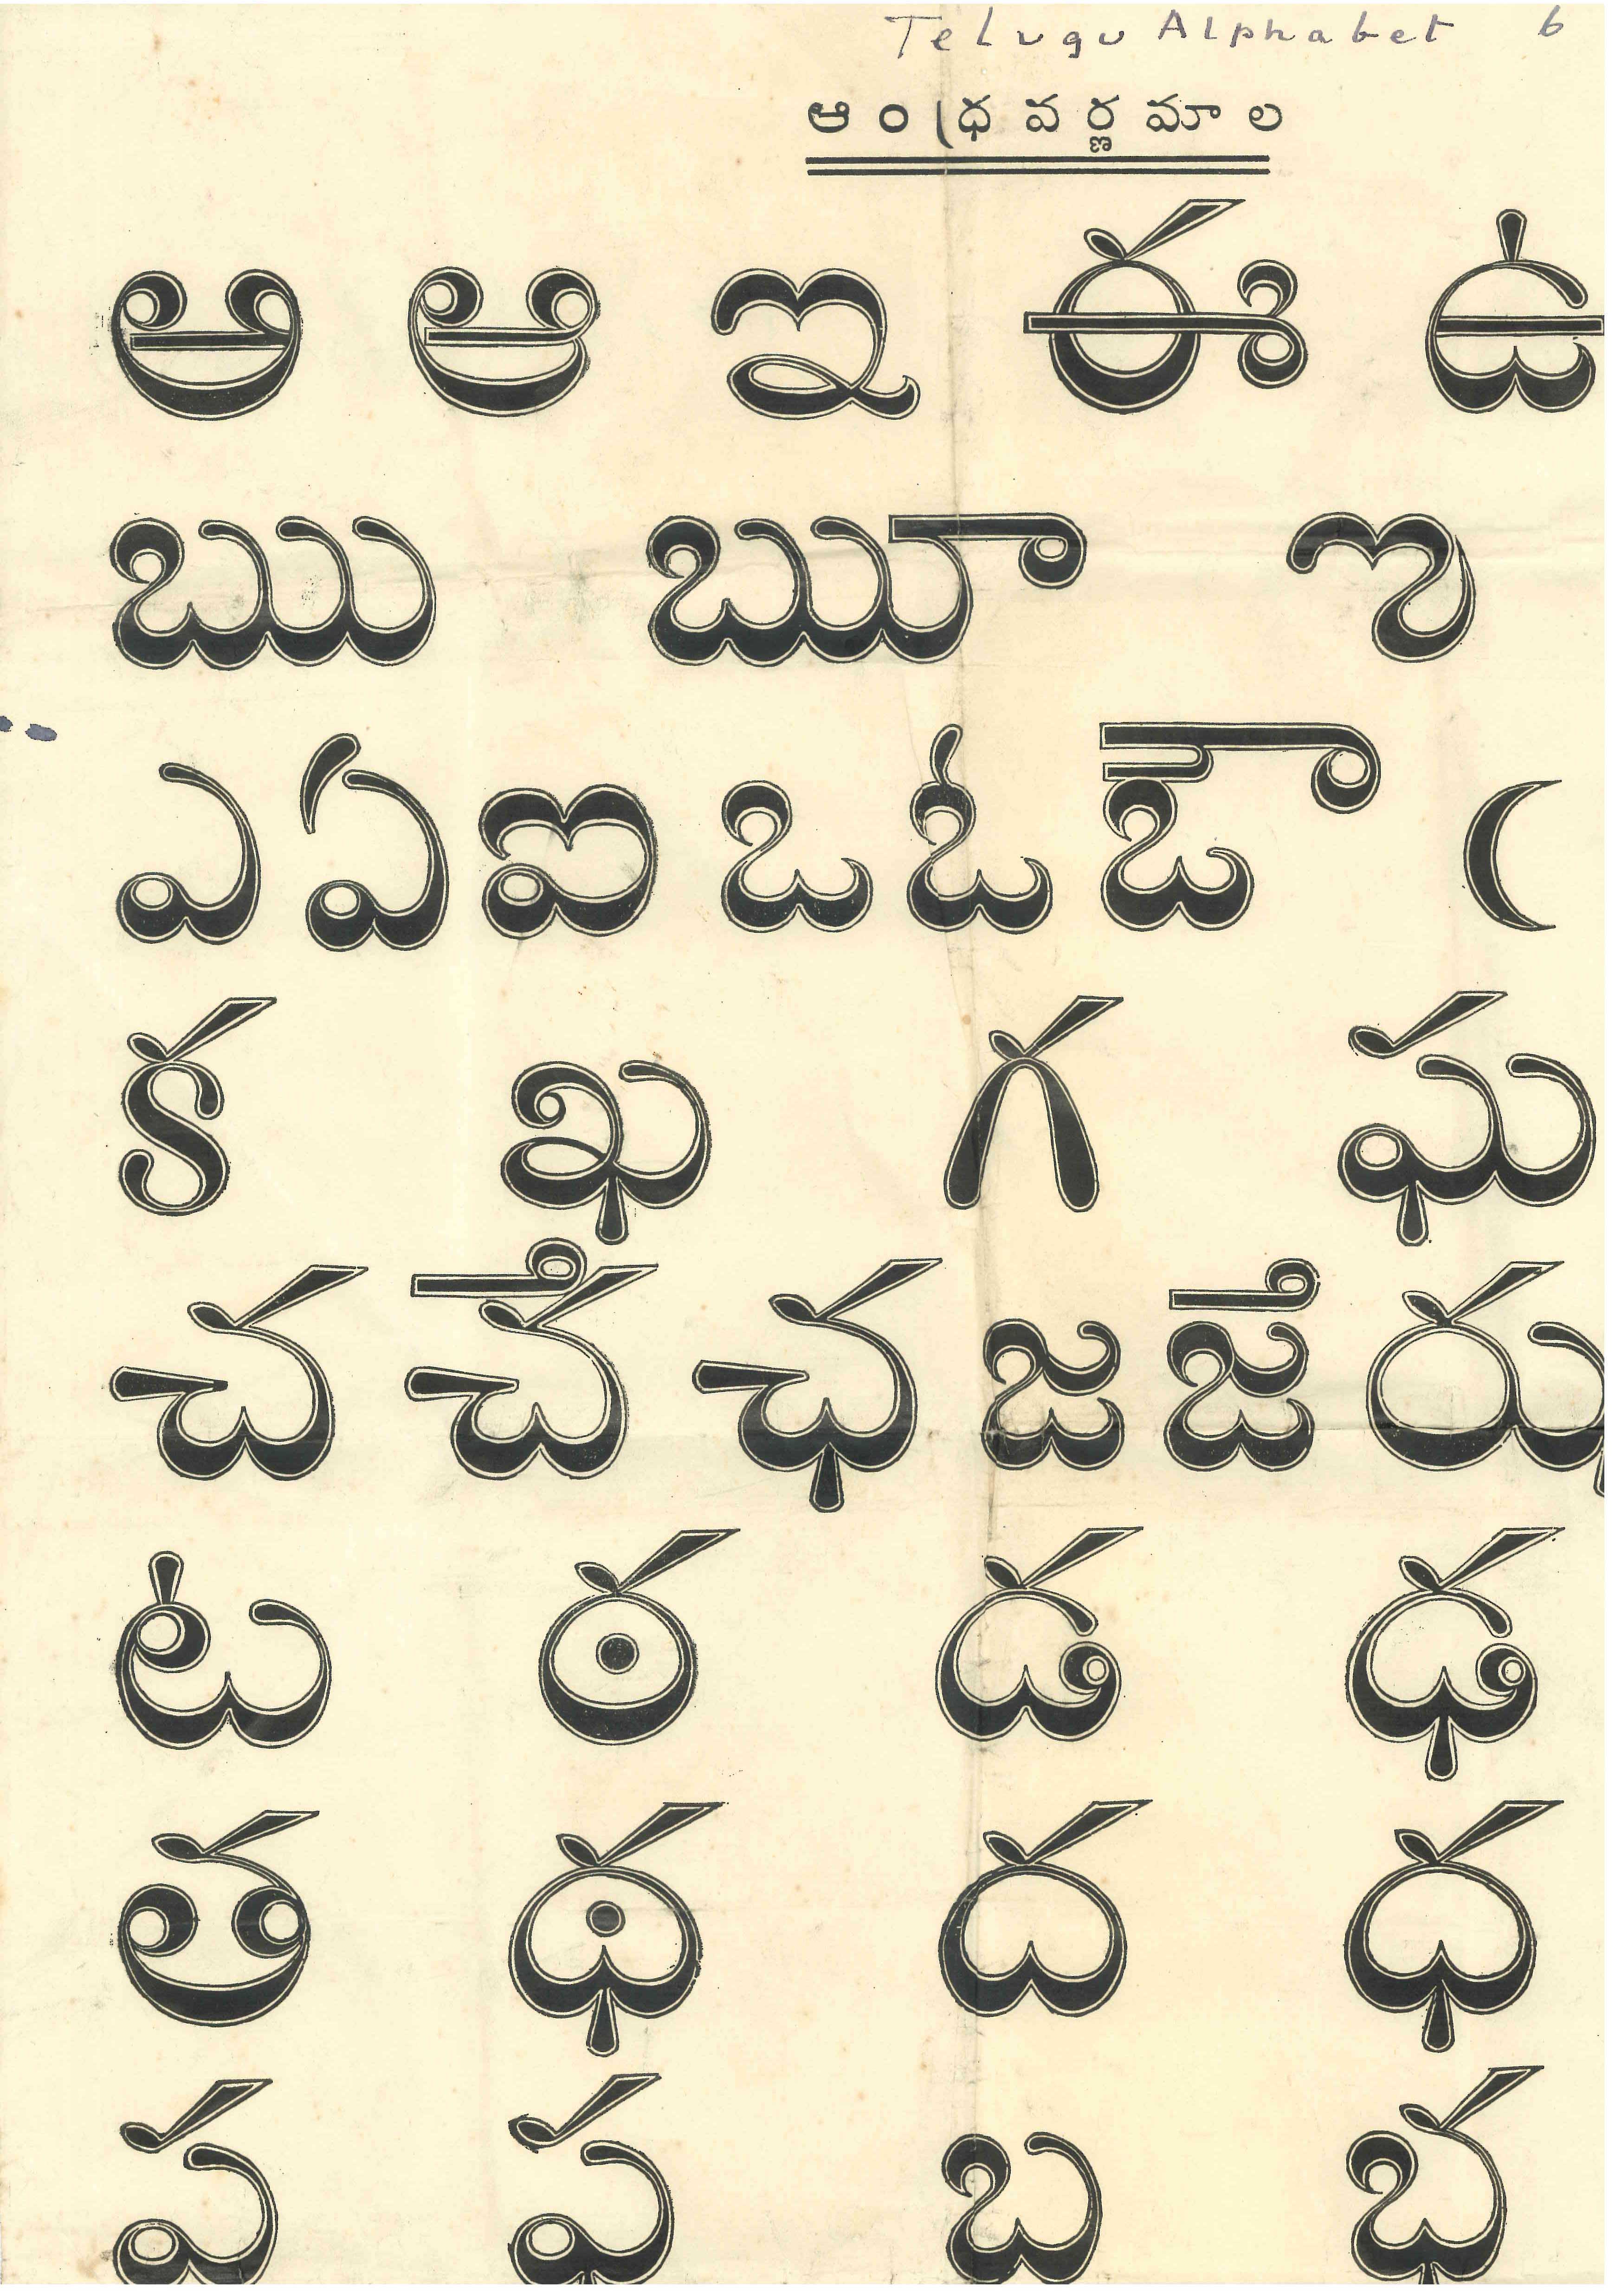 Telugu Alphabet 6
ఆంధ్రవర్ణమాల
అ ఆ ఇ ఈ ఉ
ఋ ౠ ఌ
ఎ ఏ ఐ ఒ ఓ ఔ ఁ
క ఖ గ ఘ
చ ౘ ఛ జ ౙ ఝ
ట ఠ డ ఢ
త థ ద ధ
ప ఫ బ భ